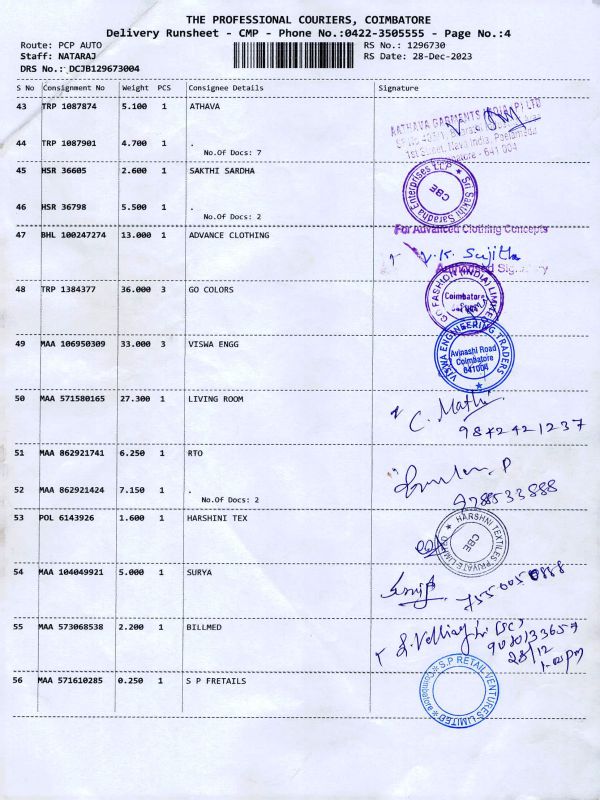 THE PROFESSIONAL COURIERS, COIMBATORE
Delivery Runsheet - CMP - Phone No.:0422-3505555 - Page No.:4
Route: PCP AUTO RS No.: 1296730
Staff: NATARAJ RS Date: 28-Dec-2023
DRS No.: DCJB129673004
S No Consignment No Weight PCS Consignee Details Signature
43 TRP 1087874 5.100 1 ATHAVA
AATHAVA GARMENTS INDIA (P) LTD
44 TRP 1087901 4.700 1 .
No.Of Docs: 7
1st Street, Nava India, Peelamedu
641 004
45 HSR 36605 2.600 1 SAKTHI SARDHA
Sri Sakthi Saradha Enterprises LLP
CBE
46 HSR 36798 5.500 1 .
No.Of Docs: 2
For Advanced Clothing Concepts
47 BHL 100247274 13.000 1 ADVANCE CLOTHING
V.K. Sujitha
Authorised Signatory
48 TRP 1384377 36.000 3 GO COLORS
GO FASHION (INDIA) LIMITED
Coimbatore
49 MAA 106950309 33.000 3 VISWA ENGG
VISWA ENGINEERING TRADERS
Avinashi Road
Coimbatore
641004
50 MAA 571580165 27.300 1 LIVING ROOM
C. Mathi
9842421237
51 MAA 862921741 6.250 1 RTO
52 MAA 862921424 7.150 1 .
No.Of Docs: 2
9788533888
53 POL 6143926 1.600 1 HARSHINI TEX
HARSHNI TEXTILES PRIVATE LIMITED
CBE
54 MAA 104049921 5.000 1 SURYA
755 005 0888
55 MAA 573068538 2.200 1 BILLMED
28/12
1.00pm
56 MAA 571610285 0.250 1 S P FRETAILS
S.P RETAIL VENTURES LIMITED
Coimbatore